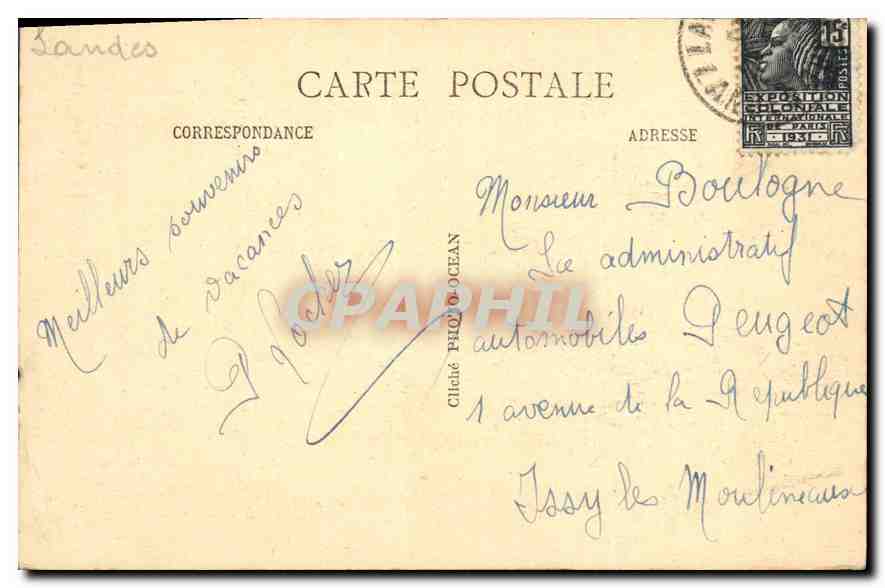 Landes
CARTE POSTALE
CORRESPONDANCE
ADRESSE
15c
POSTES
EXPOSITION
COLONIALE
INTERNATIONALE
DE PARIS
1931
Meilleurs souvenirs
de vacances
Monsieur Boulogne
administratif
automobiles Peugeot
1 avenue de la République
Issy les Moulineaux
Cliché PHOTO-OCEAN
CPAPHIL